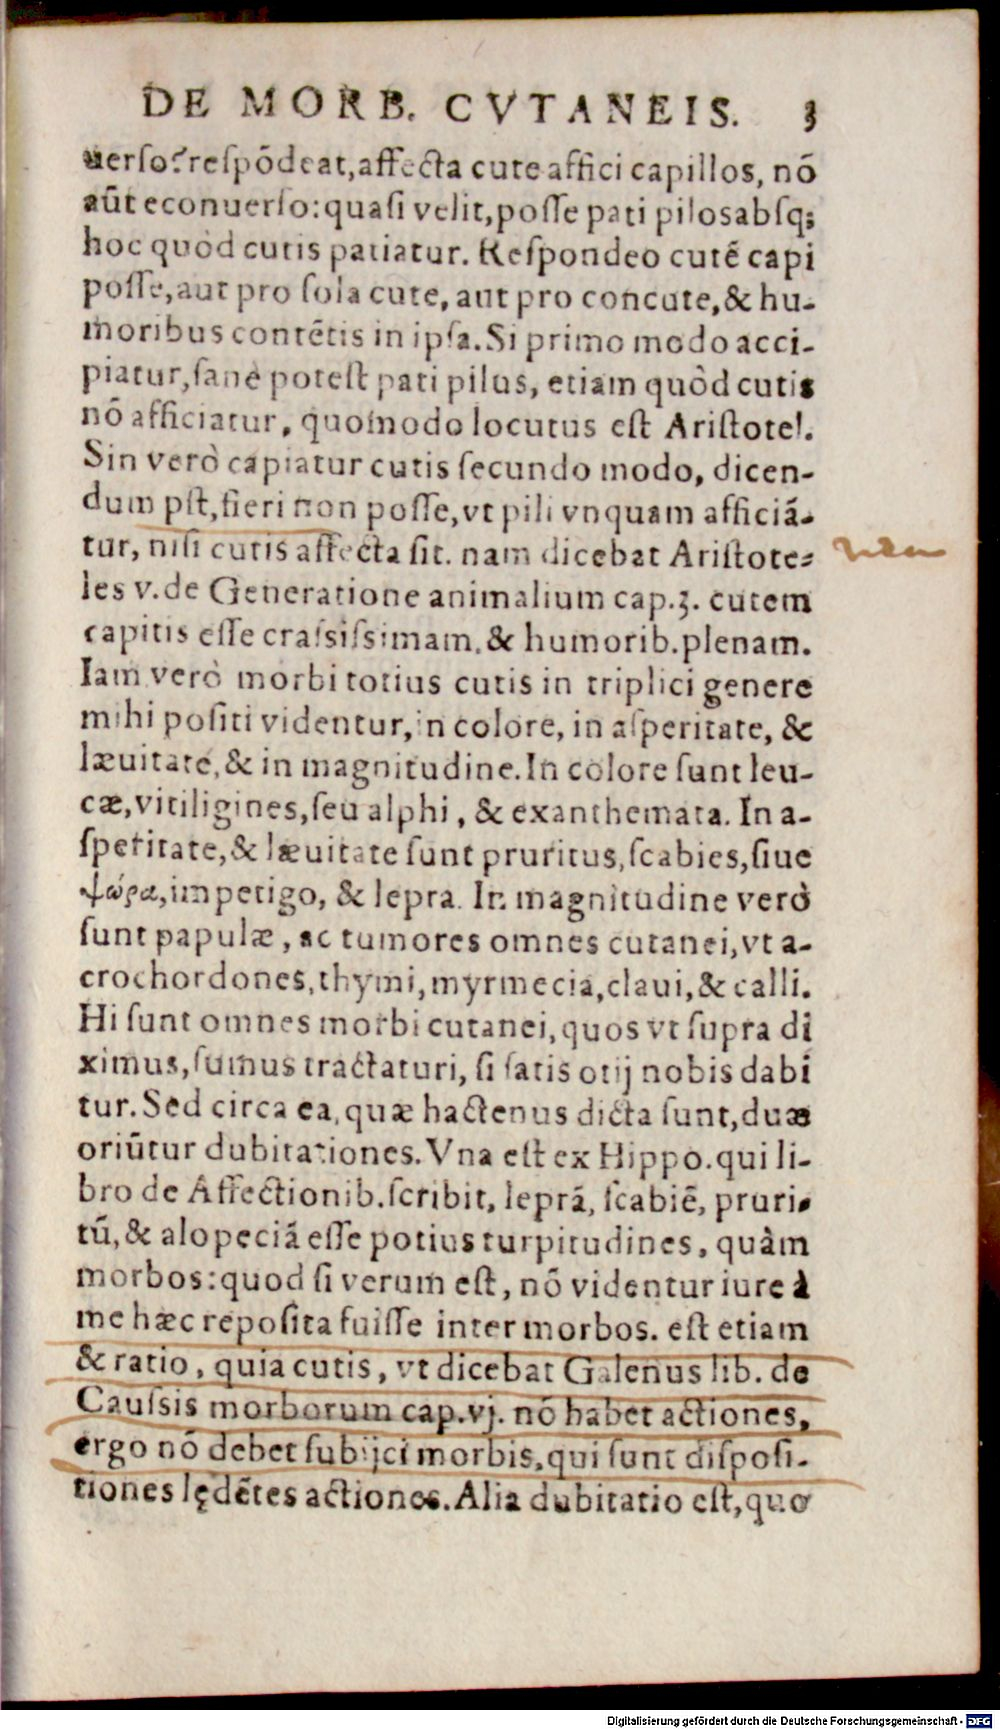 DE MORB. CVTANEIS. 3
uerso? respōdeat, affecta cute affici capillos, nō
aūt econuerso: quasi velit, posse pati pilos absq;
hoc quòd cutis patiatur. Respondeo cutē capi
posse, aut pro sola cute, aut pro concute, & hu-
moribus contētis in ipsa. Si primo modo acci-
piatur, sanè potest pati pilus, etiam quòd cutis
nō afficiatur, quomodo locutus est Aristotel.
Sin verò capiatur cutis secundo modo, dicen-
dum pst, fieri non posse, vt pili vnquam afficiā-
tur, nisi cutis affecta sit. nam dicebat Aristote-
les v. de Generatione animalium cap. 3. cutem
capitis esse crassissimam, & humorib. plenam.
Iam verò morbi totius cutis in triplici genere
mihi positi videntur, in colore, in asperitate, &
læuitate, & in magnitudine. In colore sunt leu-
cæ, vitiligines, seu alphi, & exanthemata. In a-
speritate, & læuitate sunt pruritus, scabies, siue
ψώρα, impetigo, & lepra. In magnitudine verò
sunt papulæ, ac tumores omnes cutanei, vt a-
crochordones, thymi, myrmecia, claui, & calli.
Hi sunt omnes morbi cutanei, quos vt supra di
ximus, sumus tractaturi, si satis otij nobis dabi
tur. Sed circa ea, quæ hactenus dicta sunt, duæ
oriūtur dubitationes. Vna est ex Hippo. qui li-
bro de Affectionib. scribit, leprā, scabiē, pruri-
tū, & alopeciā esse potius turpitudines, quàm
morbos: quod si verum est, nō videntur iure à
me hæc reposita fuisse inter morbos. est etiam
& ratio, quia cutis, vt dicebat Galenus lib. de
Caussis morborum cap. vj. nō habet actiones,
ergo nō debet subijci morbis, qui sunt disposi-
tiones lędētes actiones. Alia dubitatio est, quo
Digitalisierung gefördert durch die Deutsche Forschungsgemeinschaft - DFG